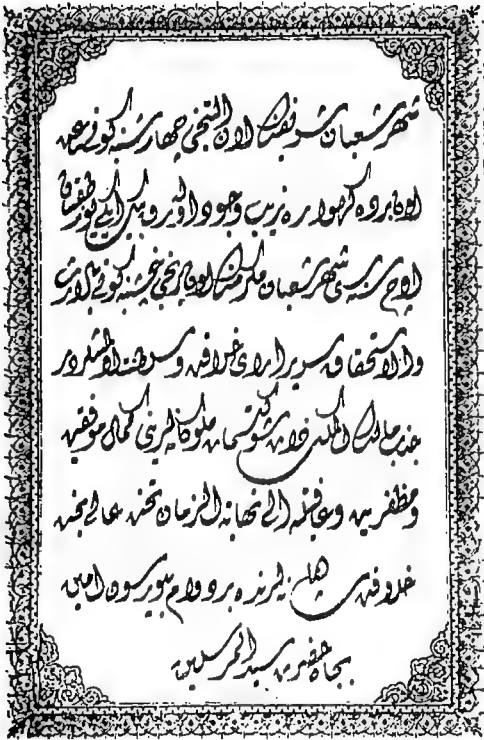 شهر شعبان شریفنك اون التنجی چهارشنبه كونی ساعت
اون برده كهواره زیب وجود اولیوب بیك ایكی یوز طقسان
اوچ سنه سی شهر شعبان مكرمنك اون برنجی پنجشنبه كونی بالارث
والاستحقاق سریر ارای خلافت و سلطنت اولمشلردر
جناب مالك الملك ذات شوكتسمات ملوكانه لرینی كمال موفقیت
و مظفریت و عافیتله الی نهایة الزمان تخت عالی بخت
خلافت لرنده بر دوام بیورسون امین
بجاه حضرت سید المرسلین